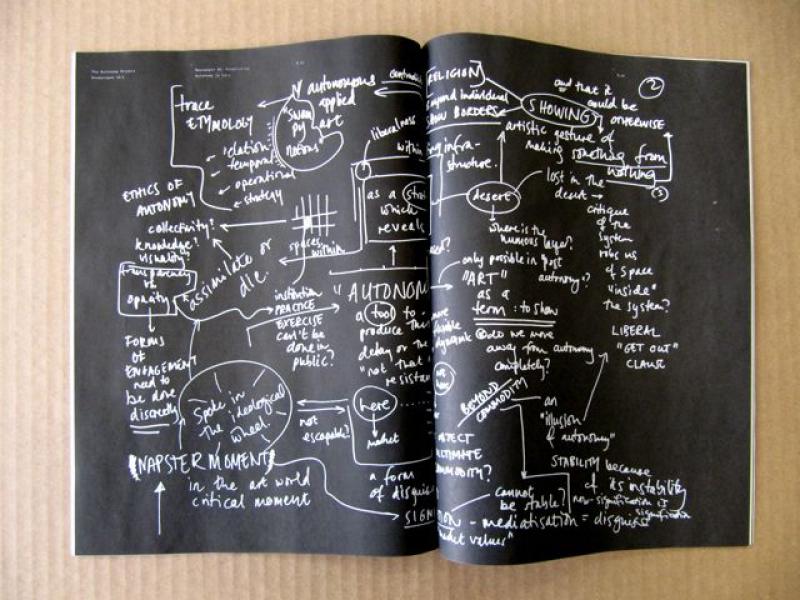 The Autonomy Project
trace
ETYMOLOGY
relation
temporal
operational
strategy
autonomous
applied
art
"SWAMPY
NOTIONS"
liberalness
within
as a
which
reveals
ETHICS OF
AUTONOMY
collectivity?
knowledge?
visuality?
transparency
vs
opacity
assimilate or
die.
spaces within
institution
PRACTICE
EXERCISE
can't be
done in
public?
FORMS
OF
ENGAGEMENT
need to
be done
discreetly
Spoke in
the ideological
wheel.
NAPSTER MOMENT
in the art world
critical moment
"AUTONOM
a tool to
produce
delay or the
"not that
resistan
here
market
not
escapable?
a form
of disguise
SIGN
RELIGION
beyond individual
SHOW BORDERS
SHOWING
and that it
could be
OTHERWISE
2
artistic gesture of
making something from
nothing
infra-
structure.
desert
lost in the
desert →
where is the
numinous layer?
critique
of the
system
robs us
of space
"inside"
the system?
only possible in post
autonomy?
"ART"
as a
term: to show
do we move
away from autonomy
completely?
LIBERAL
"GET OUT"
CLAUSE
BEYOND
COMMODITY
an
"illusion
of autonomy"
OBJECT
ULTIMATE
COMMODITY?
STABILITY because
of its instability
non-signification is
signification
cannot
be stable?
ION - mediatisation = disguise
market values"